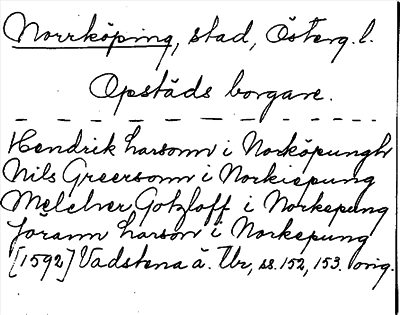 Norrköping, stad, Österg. l.
Opståds borgare.
Hendrik Larsonn i Norköpungh
Nils Greersonn i Norkiepung
Melcher Gotzloff i Norkepung
Jörann Larson i Norkepung
[1592] Vadstena ä. Tbr, ss. 152, 153. orig.